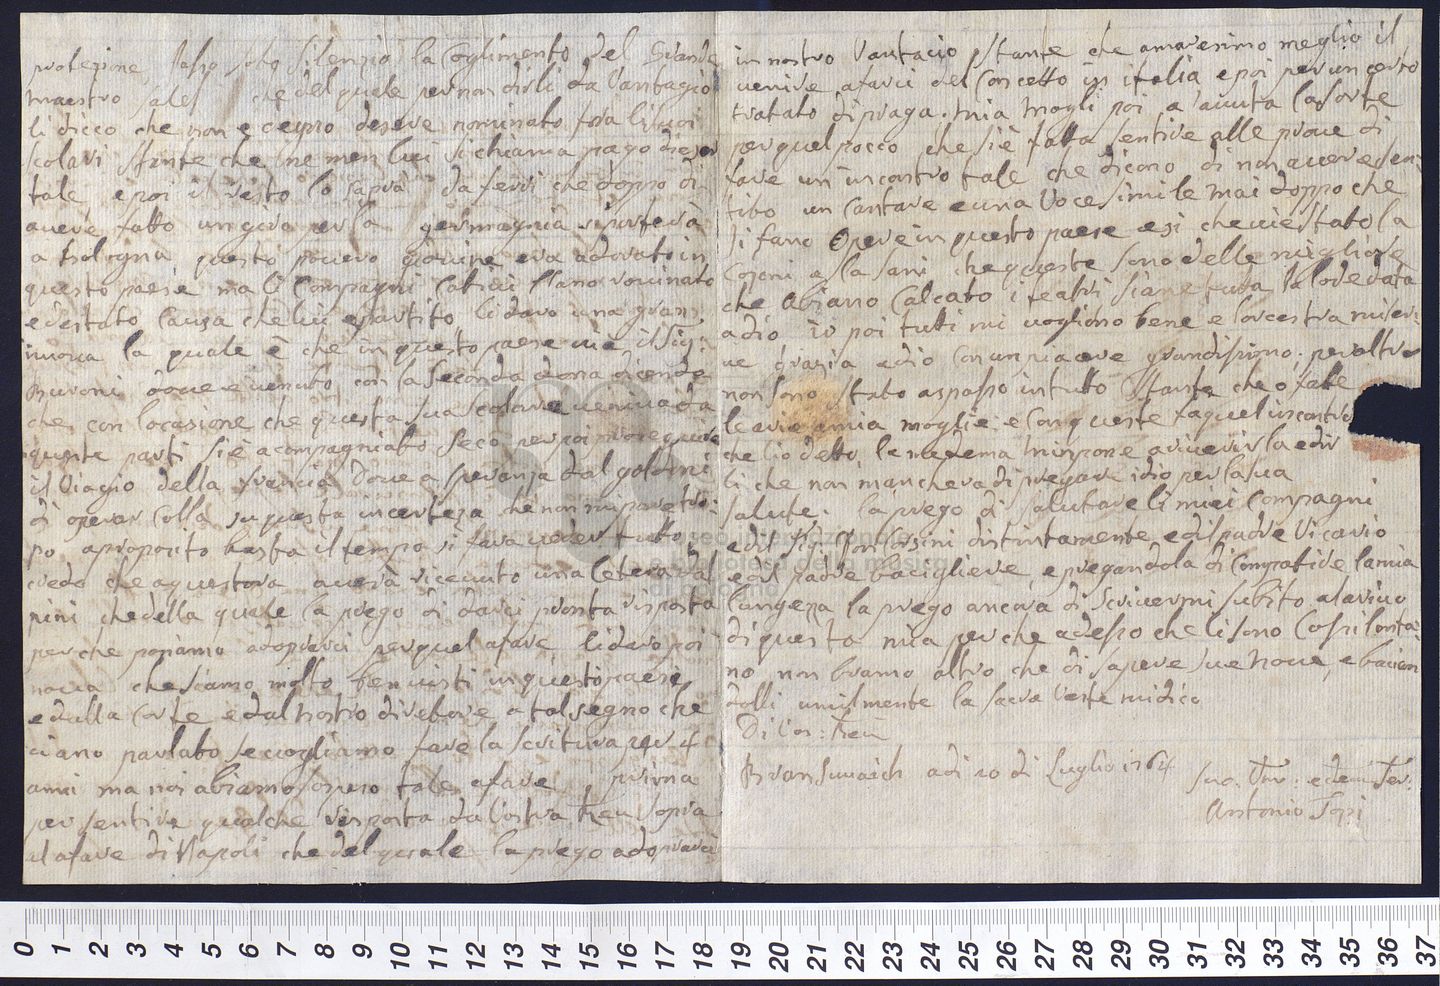 protezione, laso soto silenzio la Coglimento del Grande
maestro sales che del quale per non dirli da Vantagio
li dicco che non e degno deseve nominato fra li suoi
scolari stante che ne men lui si chiama pago di esser
tale e poi il resto lo saprà da fersi che doppo di
avere fatto un giro per la germagnia riporterà
a Bologna questo povero giovine era adorato in
questo paese ma li Compagni Cativi l'ano rovinato
ed è stato Causa che lui è partito li daro una gran
nuova la quale è che in questo paese vi è il Sig:
Buroni dove e venuto con la Seconda dona dicendo
che con locasione che questa sua scolare veniva da
queste parti si è acompagniato seco per poi proseguire
il Viagio della francia Dove a speranza dal goldoni
di operar Colla su questa incerteza che non mi pare tro:
po aproposito basta il tempo si fara veder tutto
credo che a quest'ora averà ricevuto una letera dal
nini che della quale la prego di darci pronta risposta
perche posiamo adoprarci per quel afare li daro poi
nova che siamo molto ben visti in questo paese
e dalla Corte e dal nostro diretore a tal segno che
ciano parlato se vogliamo fare la scritura per 4
anni ma noi abiamo sospeso tale afare prima
per sentire qualche risposta da Vostra Reu sopra
al afare di Napoli che del quale la prego adoprarsi
in nostro Vantacio stante che amaresimo meglio il
venire a farci del Concetto in italia e poi per un certo
tratato di praga. mia mogli poi a 'auuta la sorte
per quel pocco che si è fatta sentire alle prove di
fare un incontro tale che dicono di non avere sen
tito un Cantare e una Voce simile mai doppo che
si fano Opere in questo paese e si che vi è stato la
Cosoni a la sani che queste sono delle migliore
che abiano Calcato i teatri sia ne tutta la lode data
a dio io poi tutti mi vogliono bene e l'orcestra mi ser:
ve grazia a dio con un piacere grandisimo; per altro
non sono stato a spasso in tutto stante che o fatto
le arie a mia moglie e con queste fa quel incontro
che lio detto, la medema m'inpone a riverirla e dir
li che non manchera di pregare idio per la sua
salute. la prego di salutare li miei Compagni
e del Sig: Don Corsini distintamente e dil padre Vicario
e dil padre baciglieve, e pregandola di Compatire la mia
langeza la prego ancora di scrivermi subito al arivo
di questa mia perche adesso che li sono Cossi lonta
no non bramo altro che di sapere sue nove, e bacien
dolli umilmente la sacra Veste mi dico
Di Vos: Reu
Brunswich adi 10 di Luglio 1764 Suo. Um: e deu: Ser:
Antonio Tozi
0 1 2 3 4 5 6 7 8 9 10 11 12 13 14 15 16 17 18 19 20 21 22 23 24 25 26 27 28 29 30 31 32 33 34 35 36 37